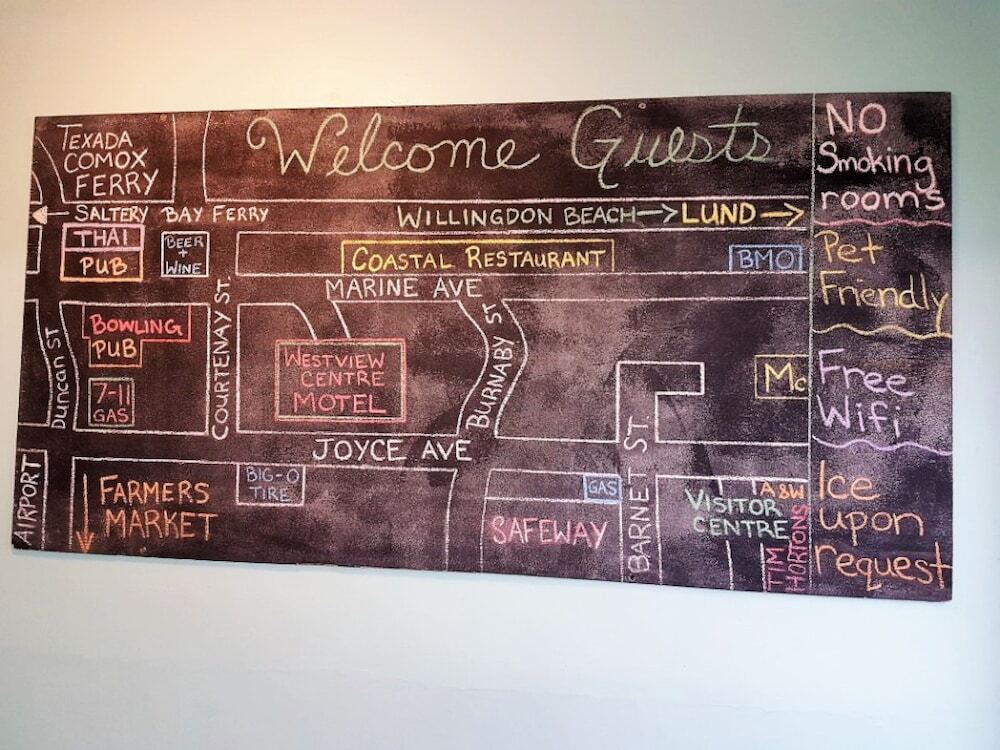 Welcome Guests
TEXADA
COMOX
FERRY
← SALTERY BAY FERRY
WILLINGDON BEACH → LUND →
THAI
PUB
BEER
+
WINE
COASTAL RESTAURANT
BMO
MARINE AVE
Duncan ST
BOWLING
PUB
7-11
GAS
COURTENAY ST.
WESTVIEW
CENTRE
MOTEL
BURNABY ST
Mc
JOYCE AVE
AIRPORT
FARMERS
MARKET
BIG-O
TIRE
GAS
SAFEWAY
BARNET ST
VISITOR
CENTRE
A&W
TIM
HORTONS
NO
Smoking
rooms
Pet
Friendly
Free
Wifi
Ice
upon
request